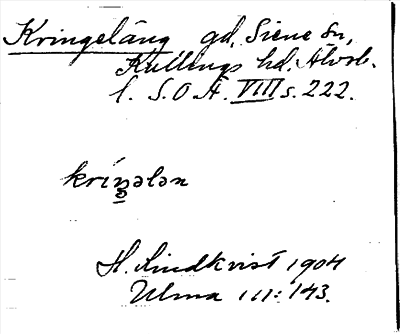 Kringeläng gd, Siene sn,
Kullings hd. Älvsb.
l. S.O.Ä. VIII s. 222.
kríŋələn
H. Lindkvist 1904
Ulma 111:143.